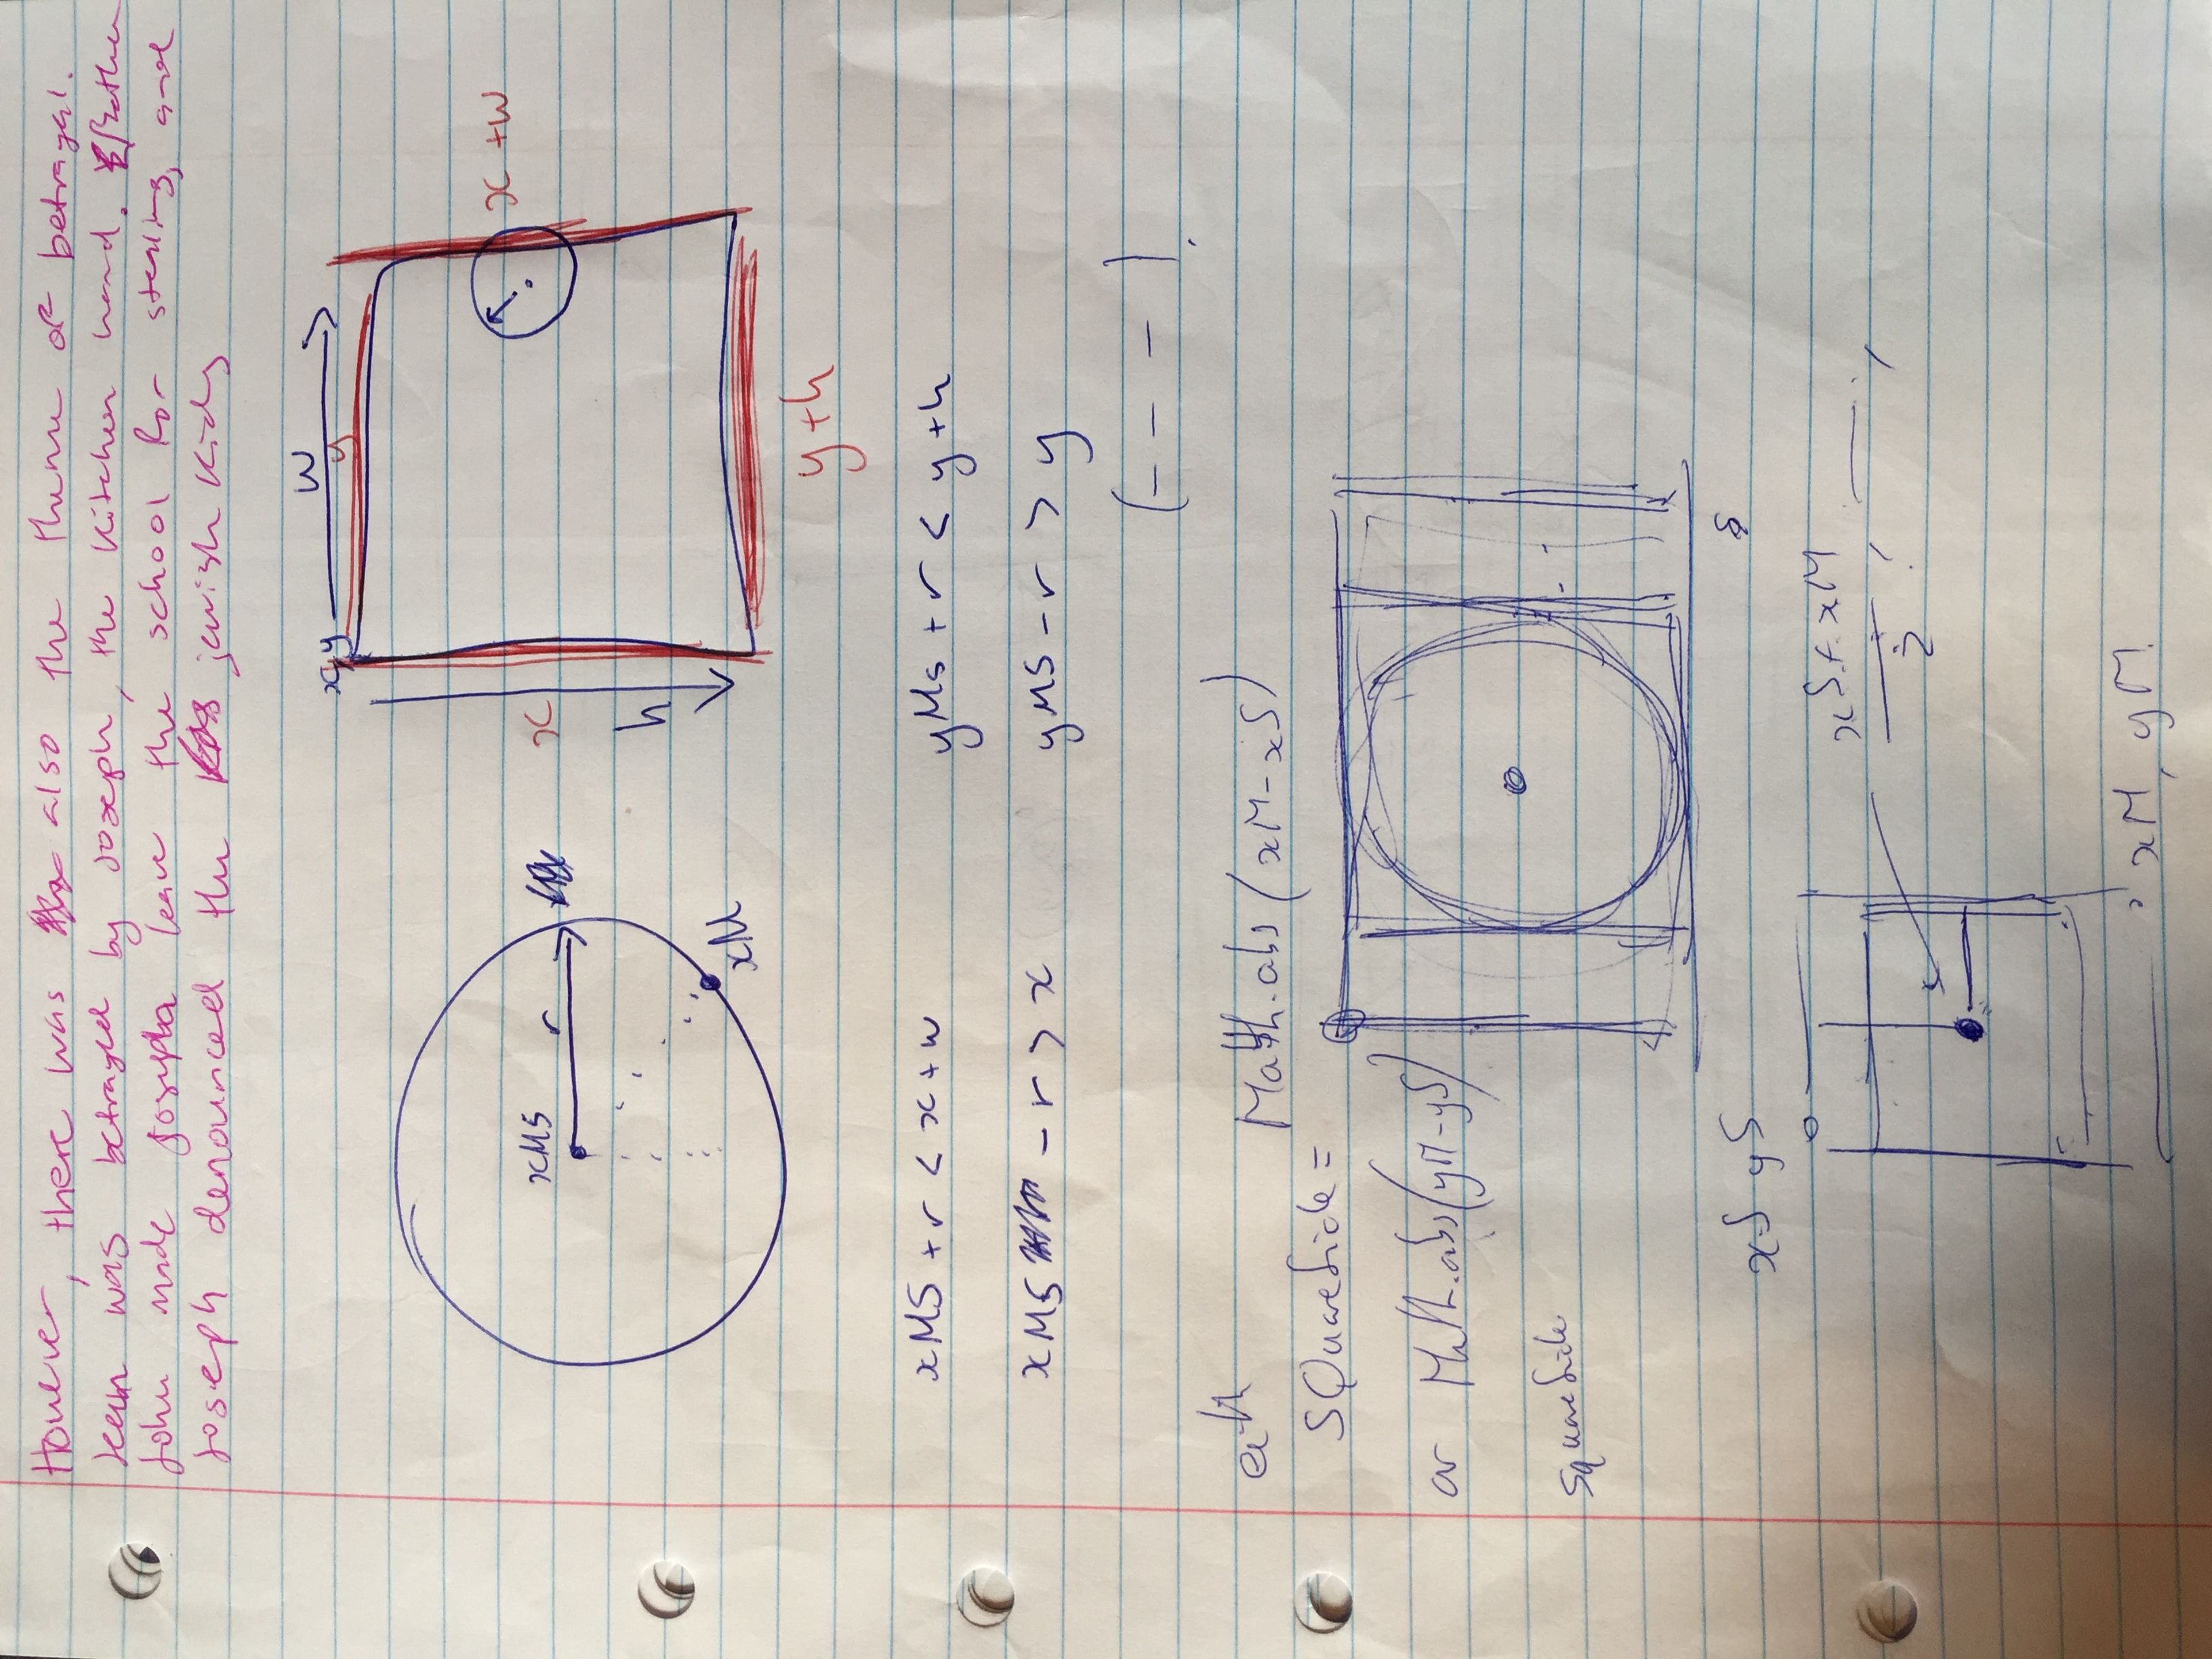 However, there was also the theme of betrayal.
was betrayed by Joseph, the kitchen hand. Father
John made Joseph leave the school for stealing, and
Joseph denounced the jewish kids
w
x, y
y
xMS
r
x
x + w
h
xM
y + h
xMS + r < x + w
yMS + r < y + h
xMS - r > x
yMS - r > y
(- - - ).
Math.abs(xM - xS)
SQuareSide =
or Math.abs(yM - yS)
squareSide
S
xS yS
xS + xM
2
xM, yM